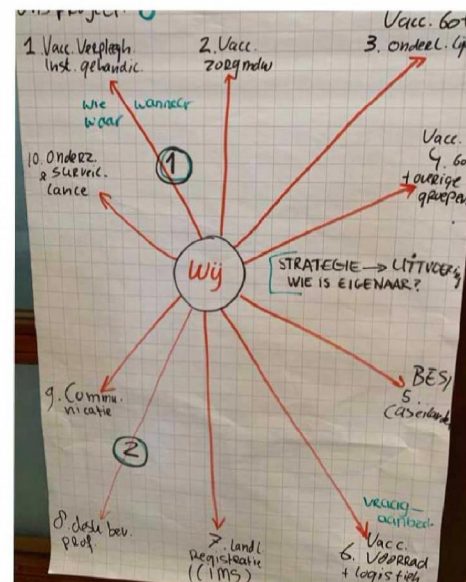 1. Vacc. Verpleegh.
Inst. gehandic.
2. Vacc.
zorgmdw
Vacc. 60+
3. onderl.
wie wanneer
waar
1
10. Onderz.
& surveil-
lance
Vacc.
4.
+ overige
groepen
Wij
STRATEGIE → UITVOERING
WIE IS EIGENAAR?
BES/
5.
eilanden
9. Commu-
nicatie
2
8. desk. bev.
prof.
7. landl.
Registratie
(CIMS)
vraag-
aanbod
Vacc.
6. VOORRAAD
+ logistiek